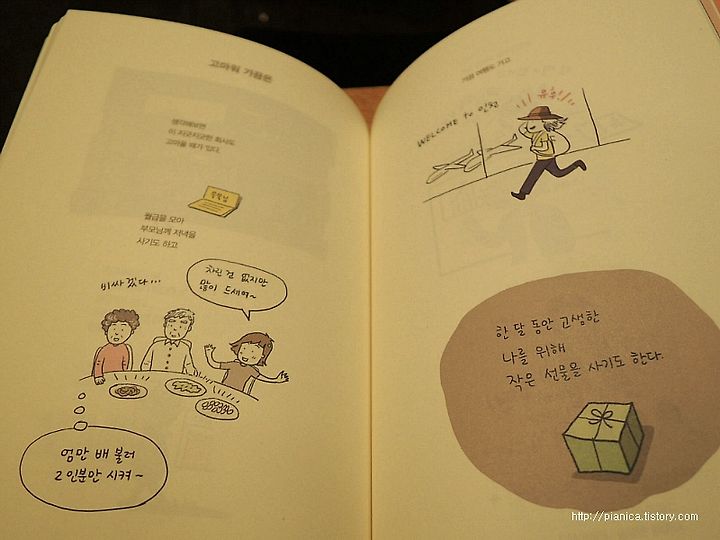 고마워 가끔은
생각해보면
이 지긋지긋한 회사도
고마울 때가 있다.
월급을 모아
부모님께 저녁을
사기도 하고.
비싸겠다...
차린 건 없지만
많이 드세여~
엄만 배 불러
2인분만 시켜~
가끔 여행도 가고.
유후!
WELCOME to 인천
한 달 동안 고생한
나를 위해
작은 선물을 사기도 한다.
http://pianica.tistory.com